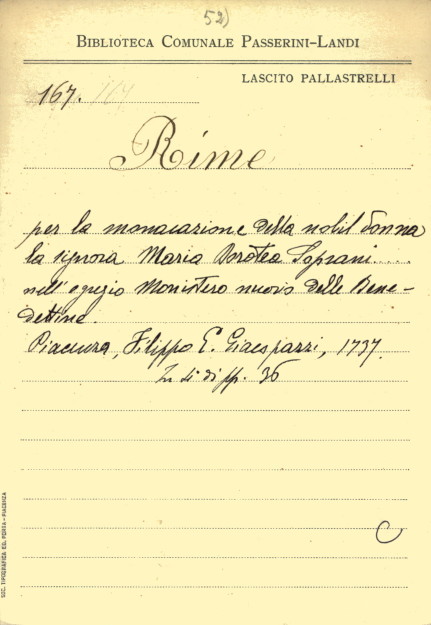 52)
BIBLIOTECA COMUNALE PASSERINI-LANDI
LASCITO PALLASTRELLI
167. 164
Rime
per la monacazione della nobil donna
la signora Maria Dorotea Soprani.....
nell'egregio Monistero nuovo delle Bene-
dettine.
Piacenza, Filippo G. Giacopazzi, 1737.
In 4° di pp. 36
C
SOC. TIPOGRAFICA DEL PORTA - PIACENZA